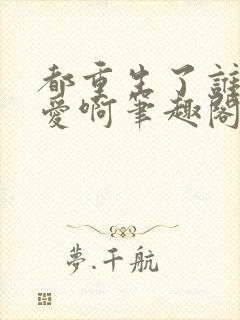 都重生了誰
愛啊筆趣閣
夢.千航